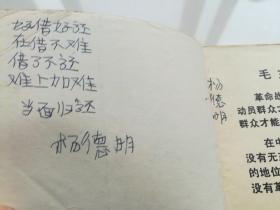 好借好还
在借不难
借了不还
难上加难
当面归还
杨德明
杨德明
毛
革命战
动员群众才
群众才能
在中
没有无
的地位
没有革